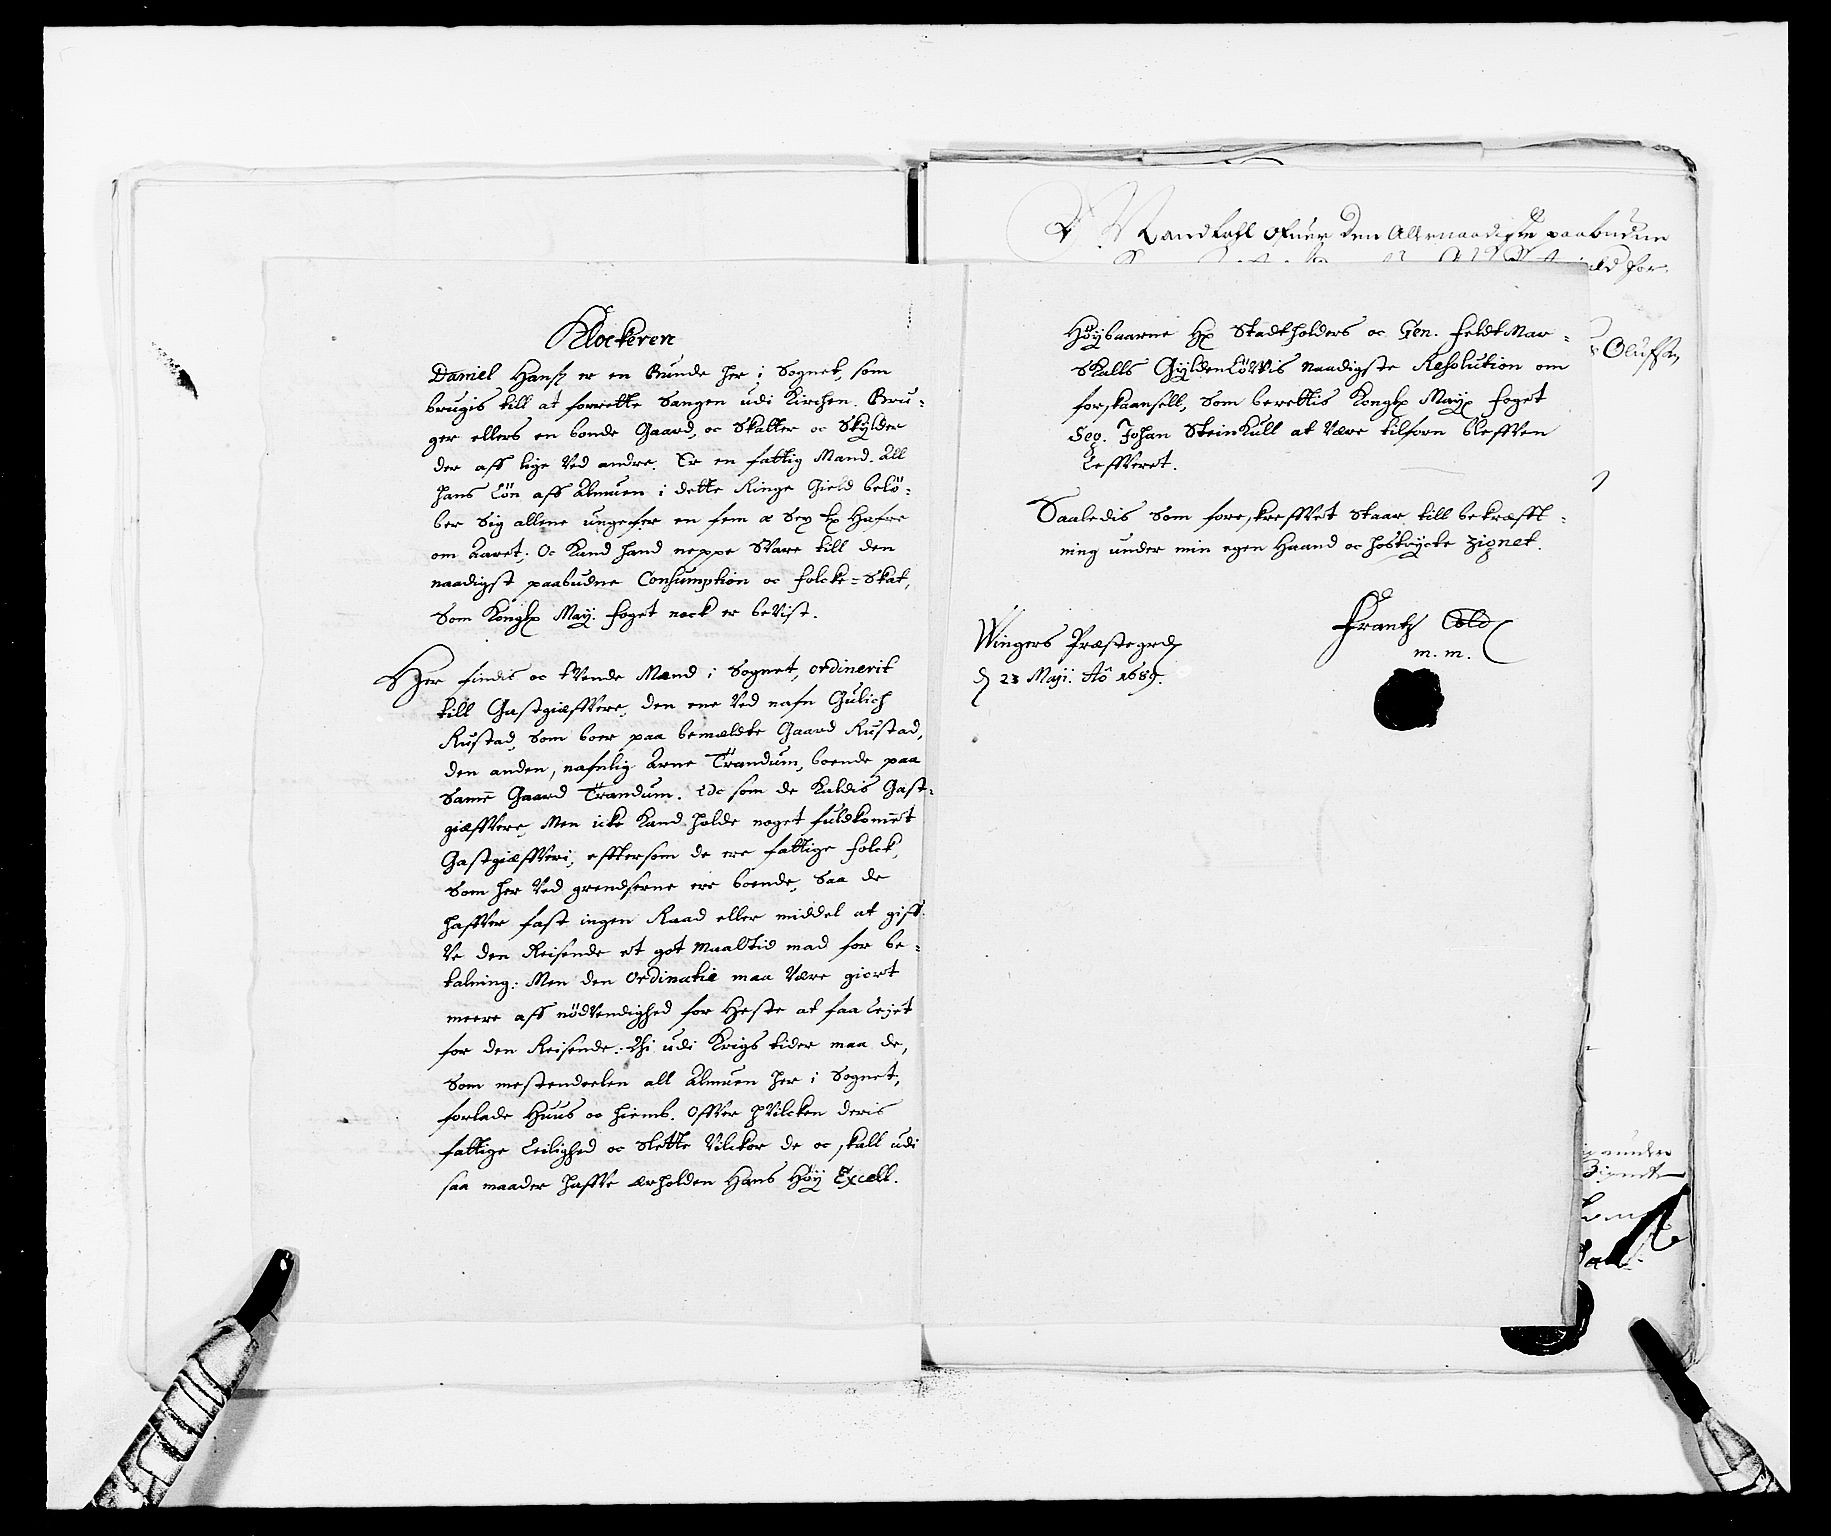 Klockeren
Daniel Hanß er en Bunde her i Sognet, som
brugis till at forrette Sangen udi Kirchen. Bru-
ger ellers en bonde Gaard, oc Skatter oc Skylder
der aff lige Ved andre. Er en fattig Mand. All
hans Løn aff Almuen i dette Ringe Gield belø-
ber Sig allene ungefer en fem a Sex tr Hafre
om Aaret; Oc Kand hand neppe Svare till den
naadigst paabudne Consumption oc folcke-Skat,
Som Kongl May. foget nock er beVist.
Her findis oc tVende Mænd i Sognet, ordinerit
till Gastgiæffvere, den ene Ved nafn Gulich
Rustad, Som boer paa bemældte Gaard Rustad,
den anden, nafnlig Arne Trandum, boende paa
Samme Gaard Trandum. som de Kaldis Gast-
giæffvere, Men icke Kand holde noget fuldkommet
Gastgiæffveri, effterson de ere fattige folck,
Som her Ved grendserne ere boende, Saa de
haffver fast ingen Raad eller middel at giff-
Ve den Reisende et got Maaltid mad for be-
talning: Men den Ordinatie maa Være giort
meere aff nødVendighed for Heste at faa Lejet
for den Reisende: Thi udi Krigs tider maa de,
Som mestendeelen all Almuen her i Sognet,
forlade Huus oc hiemb. OffVer hVilcken deris
fattige Leilighed oc Slette Vilckor de oc skall udi
saa maader haffVe ærholden Hans Høy Excell.
Høybaarne Hr Stadtholders oc Gen. FeldtMar-
Skalls Gyldenløwis Naadigste Resolution om
forskaansell, Som berettis Kongl May foget
Seg. Johan SteinKull at Være tilforn bleffVen
LeffVeret.
Saaledis Som foreskreffVet Staar till bekræfft-
ning under min egen Haand oc hostrycte Zignet.
Wingers Præstegrd
d 23 Maji. Aō 1689.
Frantz Cold
m. m.
Mandtall ofuer den Allernaadigste paabudne
Oluffsn